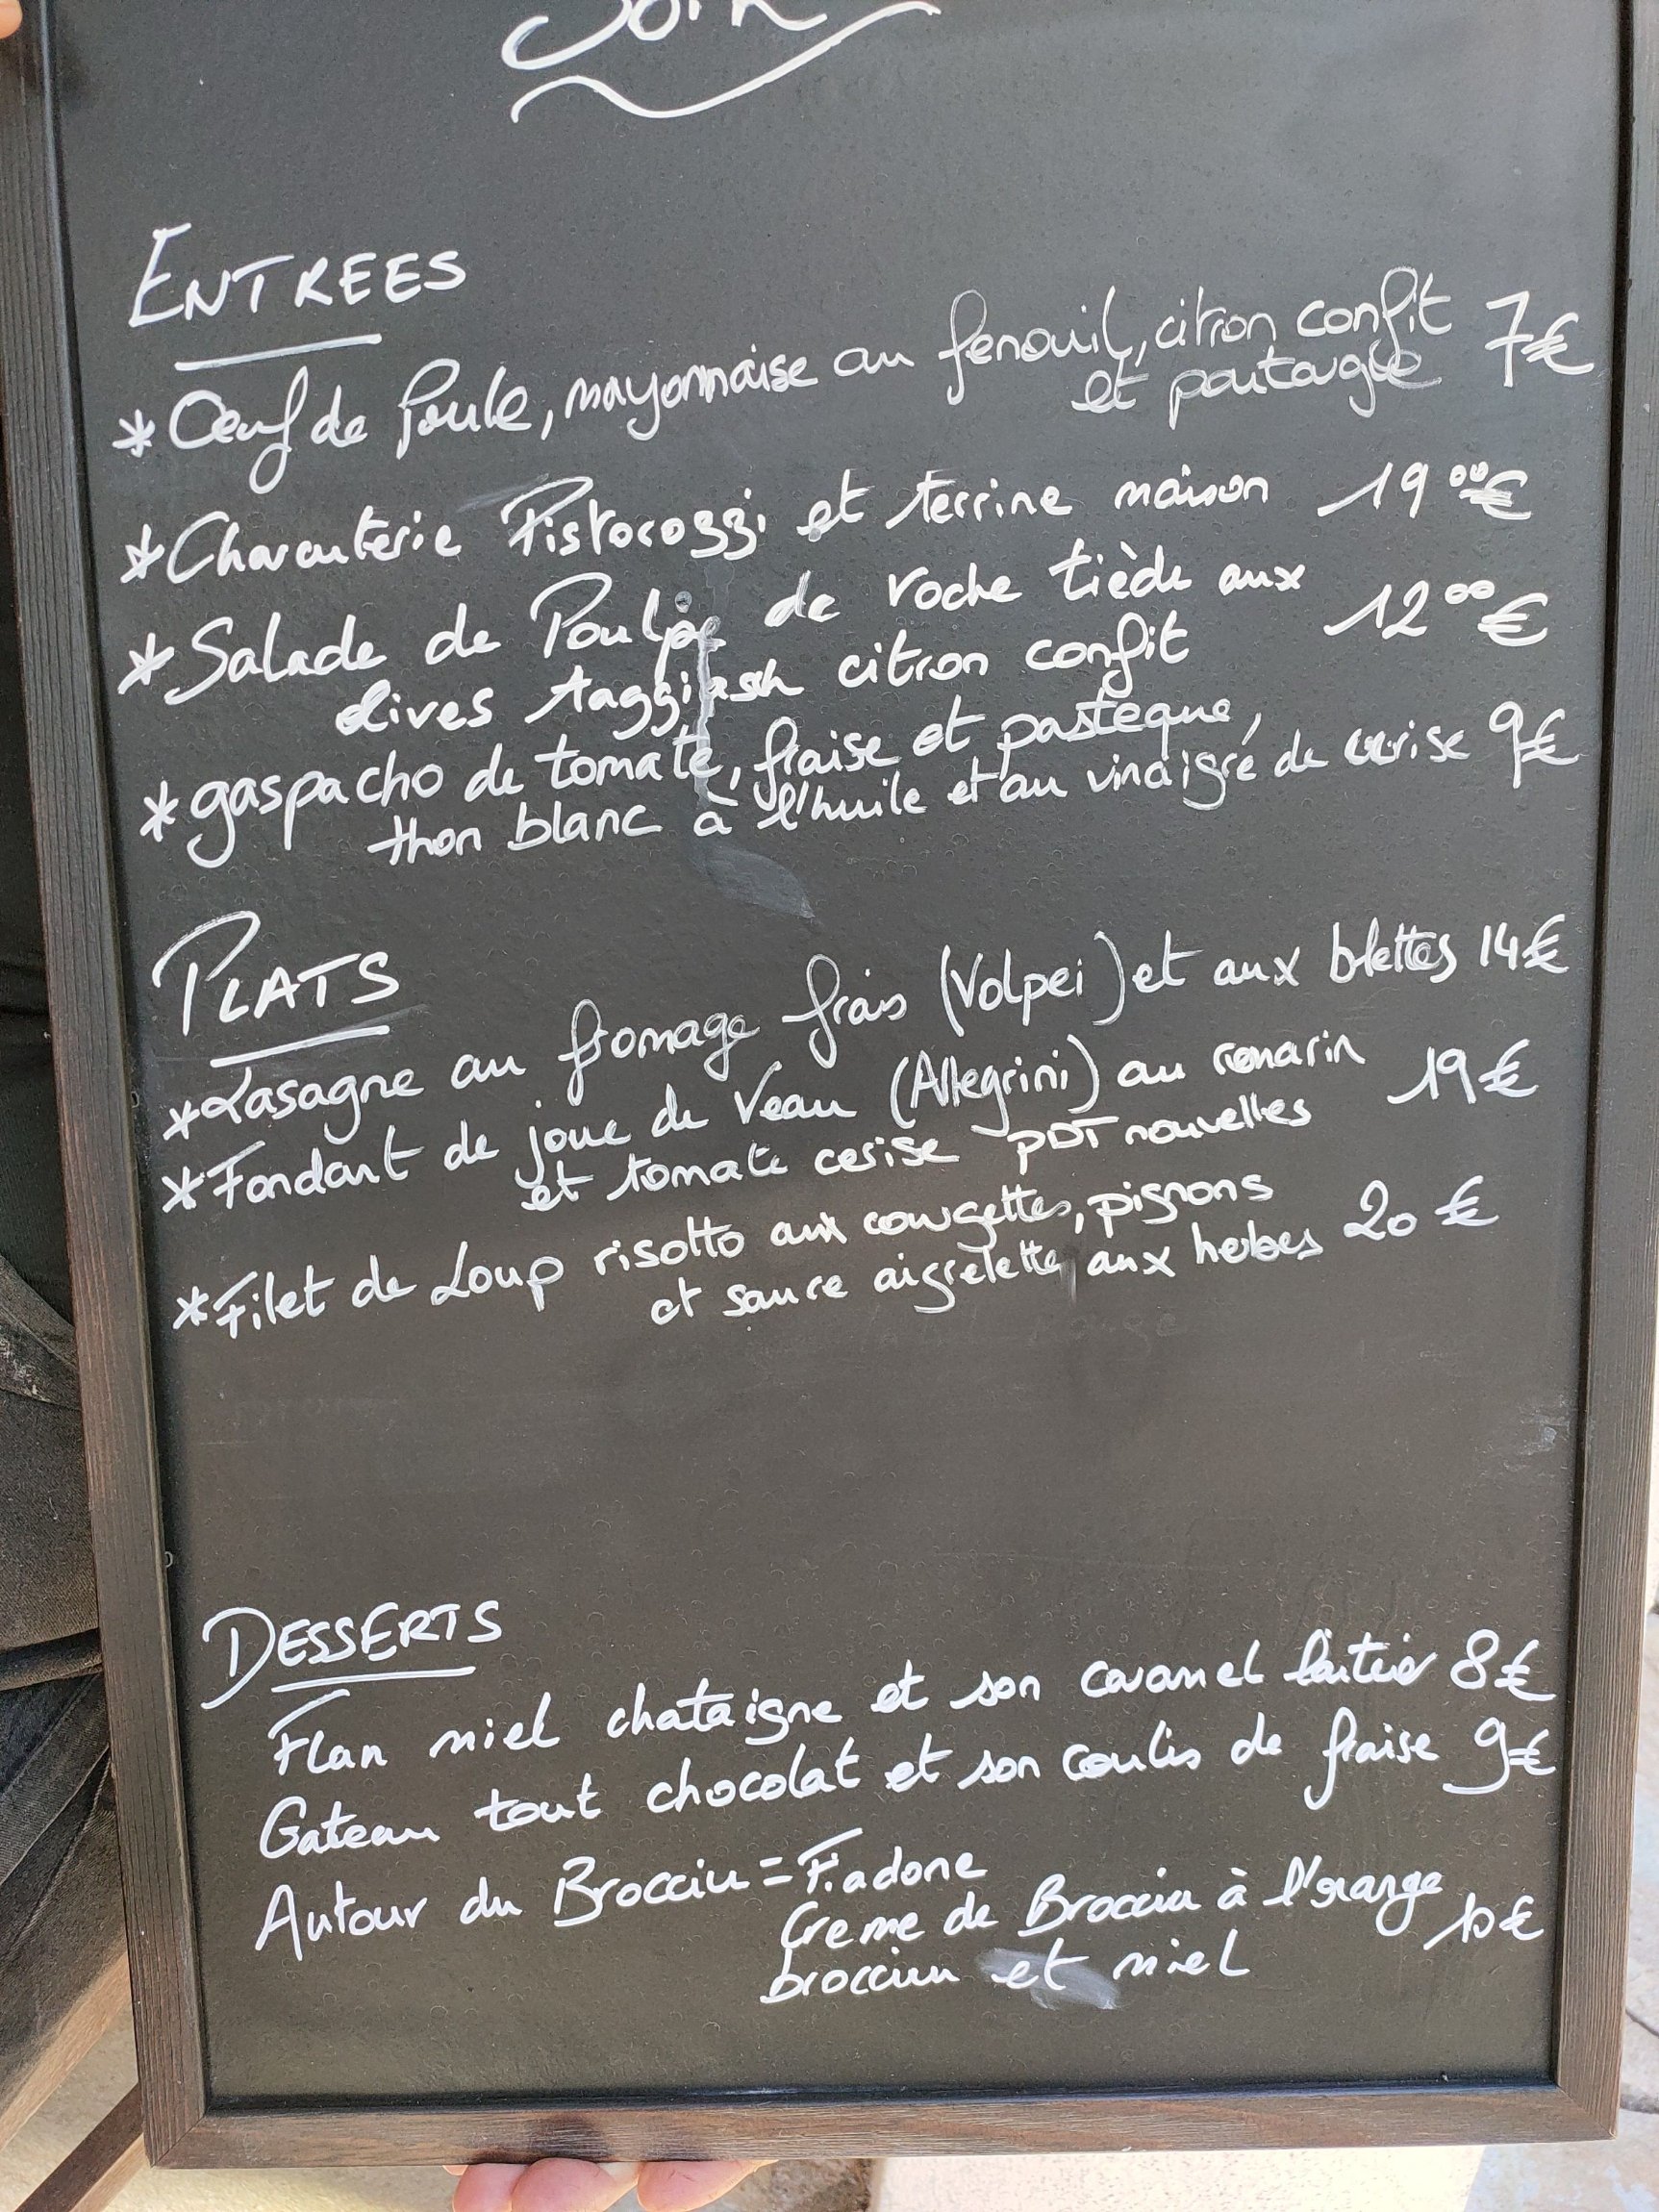 Soir
ENTREES
*Oeuf de Poule, mayonnaise au fenouil, citron confit 7€
et poutargue
*Charcuterie Pistorozzi et terrine maison 19⁰⁰€
*Salade de Poulpe de roche tiède aux 12⁰⁰€
olives taggiasch citron confit
*gaspacho de tomate, fraise et pastèque, 9€
thon blanc à l'huile et au vinaigre de cerise
PLATS
*Lasagne au fromage frais (Volpei) et aux blettes 14€
*Fondant de joue de Veau (Allegrini) au romarin 19€
et tomate cerise PDT nouvelles
*Filet de Loup risotto aux courgettes, pignons 20€
et sauce aigrelette aux herbes
DESSERTS
Flan miel chataigne et son caramel laitier 8€
Gateau tout chocolat et son coulis de fraise 9€
Autour du Brocciu = Fiadone
Creme de Brocciu à l'orange 10€
brocciu et miel